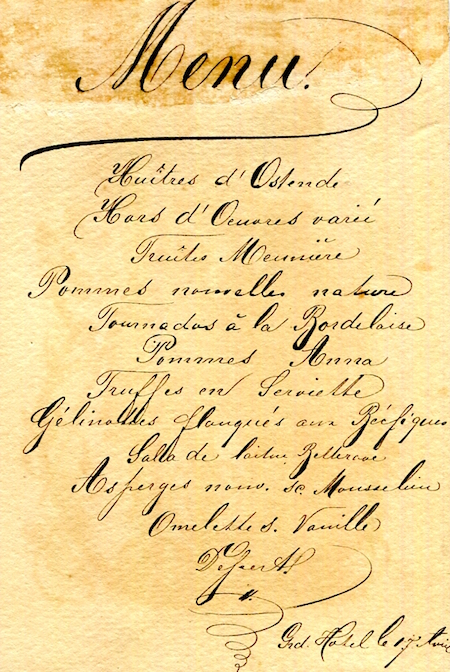 Menu.
Huîtres d'Ostende
Hors d'Oeuvres varié
Truîtes Meunière
Pommes nouvelles nature
Tournados à la Bordelaise
Pommes Anna
Truffes en Serviette
Gélinottes flanqués aux Bécfigues
Salade de laitue Betterave
Asperges nouv. sc. Mousseline
Omelette s. Vanille
Dessert
Grd. Hôtel le 17 Avril